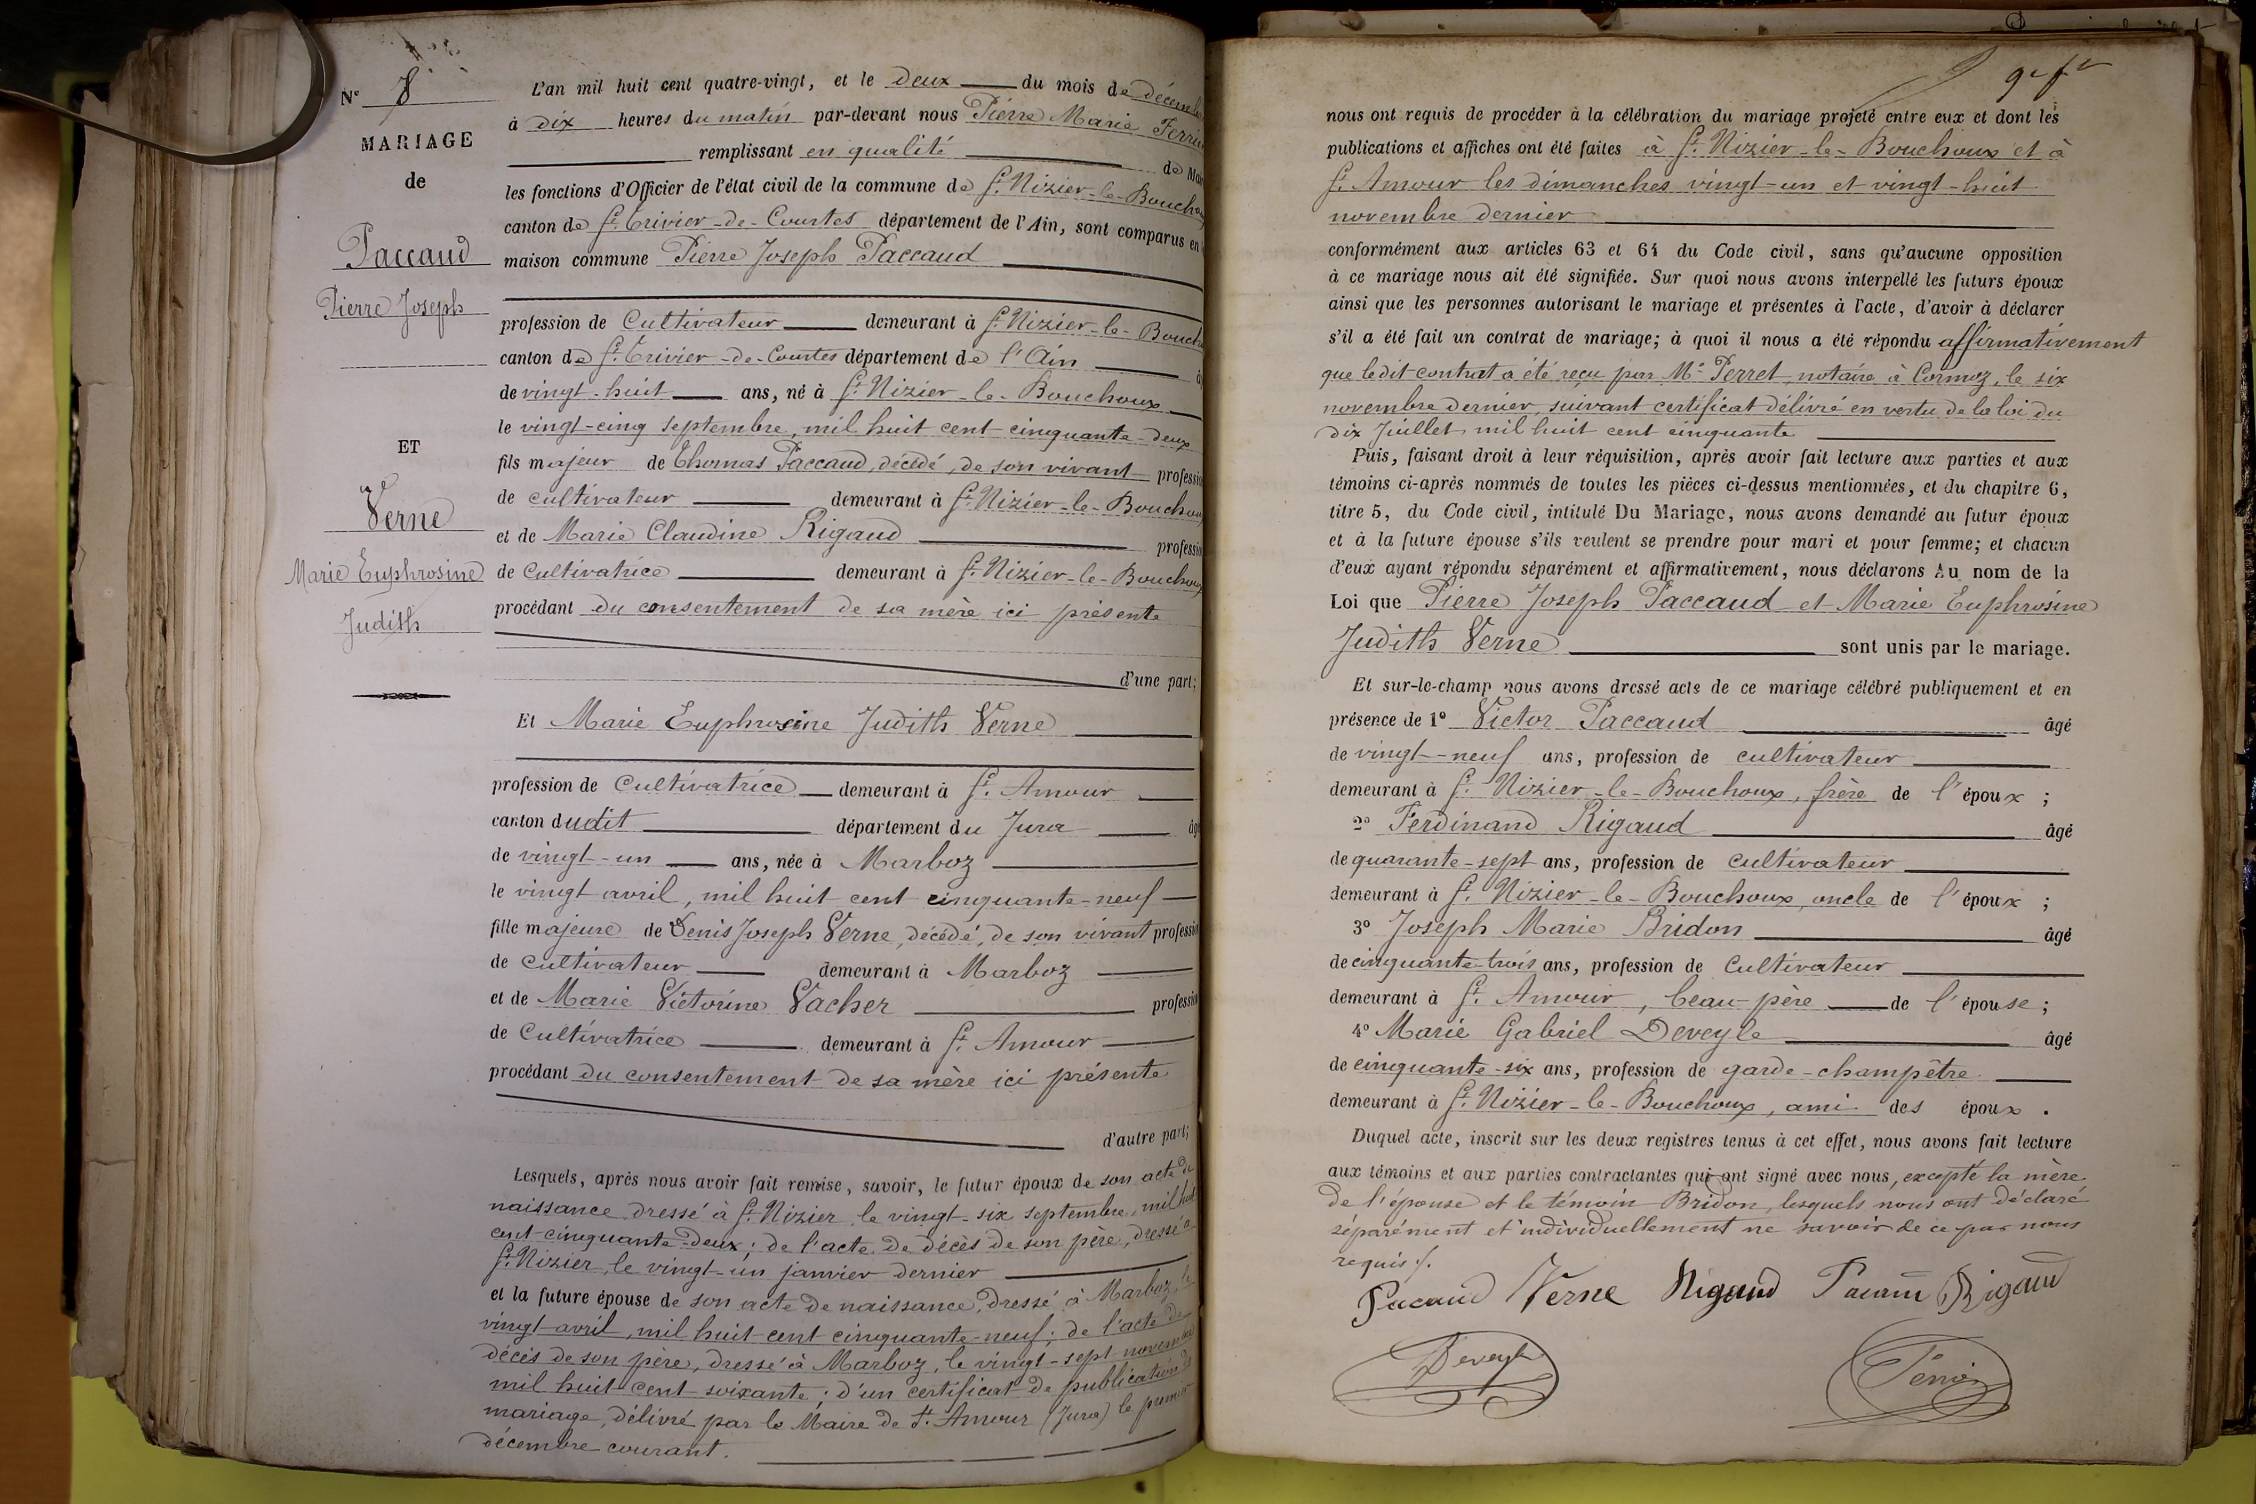 N° 8
MARIAGE
de
Paccaud
Pierre Joseph
ET
Verne
Marie Euphrosine
Judith
L'an mil huit cent quatre-vingt, et le deux du mois de décembre
à dix heures du matin par-devant nous Pierre Marie
remplissant en qualité de
les fonctions d'Officier de l'état civil de la commune de St. Nizier-le-Bouchoux
canton de St. Trivier-de-Courtes département de l'Ain, sont comparus en
maison commune Pierre Joseph Paccaud
profession de Cultivateur demeurant à St. Nizier-le-Bouch
canton de St. Trivier-de-Courtes département de l'Ain
de vingt-huit ans, né à St. Nizier-le-Bouchoux
le vingt-cinq septembre, mil huit cent cinquante-deux
fils majeur de Thomas Paccaud, décédé, de son vivant profession
de cultivateur demeurant à St. Nizier-le-Bouchoux
et de Marie Claudine Rigaud profession
de Cultivatrice demeurant à St. Nizier-le-Bouchoux
procédant du consentement de sa mère ici présente
d'une part;
Et Marie Euphrosine Judith Verne
profession de Cultivatrice demeurant à St. Amour
canton dudit département du Jura âgé
de vingt-un ans, née à Marboz
le vingt avril, mil huit cent cinquante-neuf
fille majeure de Denis Joseph Verne, décédé, de son vivant profession
de Cultivateur demeurant à Marboz
et de Marie Victorine Vacher profession
de Cultivatrice demeurant à St. Amour
procédant du consentement de sa mère ici présente
d'autre part;
Lesquels, après nous avoir fait remise, savoir, le futur époux de son acte de
naissance dressé à St. Nizier, le vingt-six septembre, mil huit
cent cinquante-deux; de l'acte de décès de son père, dressé à
St. Nizier, le vingt-un janvier dernier
et la future épouse de son acte de naissance, dressé à Marboz, le
vingt avril, mil huit cent cinquante-neuf; de l'acte de
décès de son père, dressé à Marboz, le vingt-sept novembre
mil huit cent soixante; d'un certificat de publication de
mariage, délivré par le Maire de St. Amour (Jura) le premier
décembre courant.
nous ont requis de procéder à la célébration du mariage projeté entre eux et dont les
publications et affiches ont été faites à St. Nizier-le-Bouchoux et à
St. Amour les dimanches vingt-un et vingt-huit
novembre dernier
conformément aux articles 63 et 64 du Code civil, sans qu'aucune opposition
à ce mariage nous ait été signifiée. Sur quoi nous avons interpellé les futurs époux
ainsi que les personnes autorisant le mariage et présentes à l'acte, d'avoir à déclarer
s'il a été fait un contrat de mariage; à quoi il nous a été répondu affirmativement
que ledit contrat a été reçu par Me Perret, notaire à Cormoz, le six
novembre dernier, suivant certificat délivré en vertu de la loi du
dix Juillet mil huit cent cinquante
Puis, faisant droit à leur réquisition, après avoir fait lecture aux parties et aux
témoins ci-après nommés de toutes les pièces ci-dessus mentionnées, et du chapitre 6,
titre 5, du Code civil, intitulé Du Mariage, nous avons demandé au futur époux
et à la future épouse s'ils veulent se prendre pour mari et pour femme; et chacun
d'eux ayant répondu séparément et affirmativement, nous déclarons Au nom de la
Loi que Pierre Joseph Paccaud et Marie Euphrosine
Judith Verne sont unis par le mariage.
Et sur-le-champ nous avons dressé acte de ce mariage célébré publiquement et en
présence de 1° Victor Paccaud âgé
de vingt-neuf ans, profession de cultivateur
demeurant à St. Nizier-le-Bouchoux, frère de l'époux;
2° Ferdinand Rigaud âgé
de quarante-sept ans, profession de cultivateur
demeurant à St. Nizier-le-Bouchoux, oncle de l'époux;
3° Joseph Marie Bridon âgé
de cinquante-trois ans, profession de Cultivateur
demeurant à St. Amour, beau-père de l'épouse;
4° Marie Gabriel Deveyle âgé
de cinquante-six ans, profession de garde-champêtre
demeurant à St. Nizier-le-Bouchoux, ami des époux.
Duquel acte, inscrit sur les deux registres tenus à cet effet, nous avons fait lecture
aux témoins et aux parties contractantes qui ont signé avec nous, excepté la mère
de l'épouse et le témoin Bridon, lesquels nous ont déclaré
séparément et individuellement ne savoir de ce par nous
requis /.
Pacaud Verne Rigaud Rigaud
Deveyle